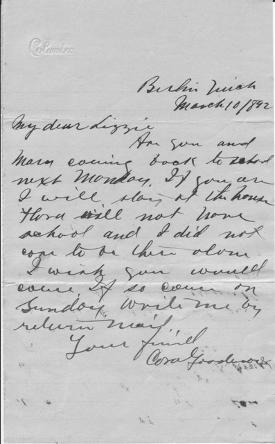 Columbia
Berlin Mich
March 10/892
My dear Lizzie
Are you and
Mary coming back to school
next Monday. If you are
I will stay at the house
Flora will not have
school and I did not
care to be there alone
I wish you would
come If so come on
Sunday. Write me by
return mail.
Your friend
Cora